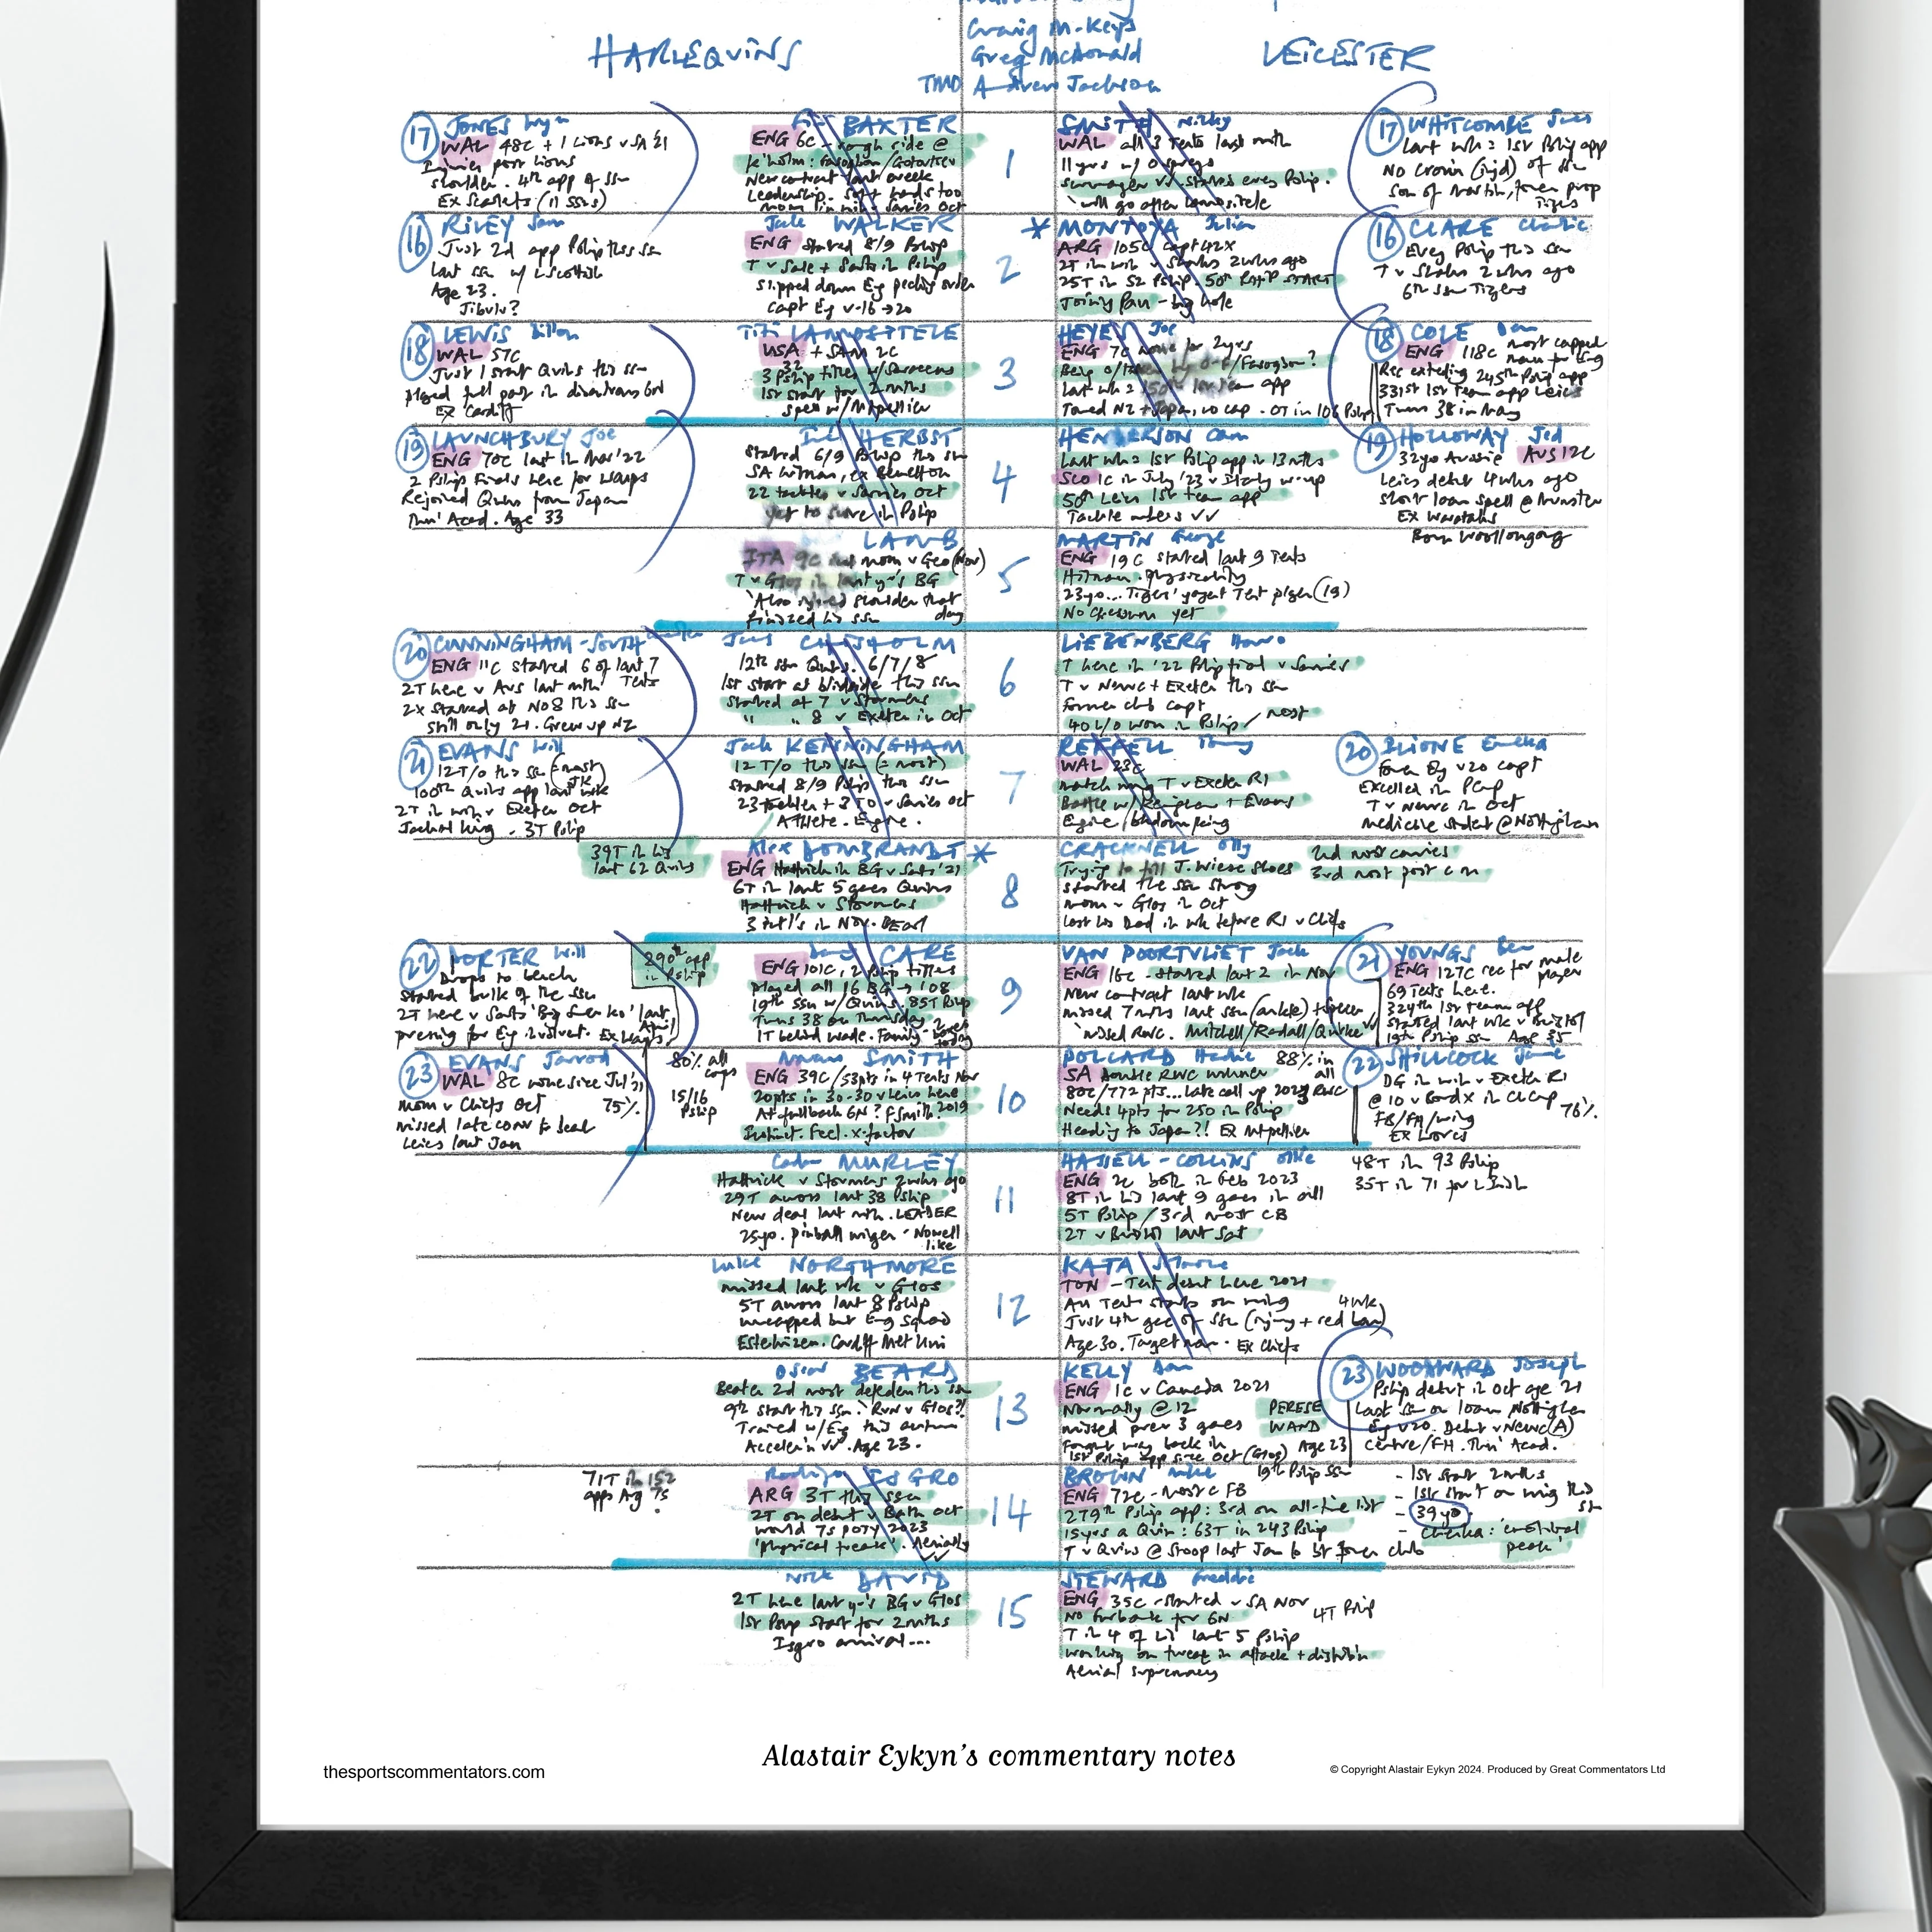 Craig M-Keys
HARLEQUINS
Greg McDonald
LEICESTER
TMO Andrew Jackson
17 JONES Wyn
WAL 48C + 1 Lions v SA 21
shoulder. 4th app of ssn
Ex Scarlets (11 ssns)
BAXTER
ENG 6C - rough side @
New contract last week
Leadership. Soft hands too
1
SMITH Nicky
WAL all 3 Tests last mth
11yrs w/ Ospreys
will go after Lamositele
17 WHITCOMBE James
Last wk = 1st Pship app
No Cronin (injd) of ssn
Son of Martin, former prop
Tigers
16 RILEY Sam
Just 2d app Pship this ssn
last ssn w/ L Scottish
Age 23.
Jibulu?
Jack WALKER
ENG started 8/9 Pship
T v Sale + Sarries in Pship
Slipped down Eng pecking order
Capt Eng v-16 → 20
2
* MONTOYA Julian
ARG 105C capt 42x
2T in win v Sharks 2wks ago
25T in 52 Pship. 50th PSHIP START
Joining Pau - big hole
16 CLARE Charlie
Every Pship this ssn
T v Sharks 2wks ago
6th ssn Tigers
18 LEWIS Dillon
WAL 57C
Just 1 start Quins this ssn
Ex Cardiff
Titi LAMOSITELE
USA + SAM 2C
32
3 Pship titles w/ Saracens
1st start for 2mths
Spell w/ Mtpellier
3
HEYES Joe
ENG 7C none for 2yrs
Toured NZ + Japan, no cap. OT in 106 Pship
18 COLE Dan
ENG 118C most capped
man for Eng
Rec extending 245th Pship app
331st 1st Team app Leics
Turns 38 in May
19 LAUNCHBURY Joe
ENG 70C last in Mar '22
2 Pship Finals here for Wasps
Rejoined Quins from Japan
Thru' Acad. Age 33
HERBST
started 6/9 Pship this ssn
SA hitman, ex Benetton
22 tackles v Sarries Oct
yet to score in Pship
4
HENDERSON Cam
Last wk = 1st Pship app in 13mths
SCO 1C in July '23 v Italy w-up
50th Leics 1st team app
Tackle numbers vv
19 HOLLOWAY Jed
32yo Aussie AUS 12C
Leics debut 4wks ago
Short loan spell @ Munster
Ex Waratahs
Born Woollongong
LAMB
ITA 9C mom v Geo (Nov)
T v Glos in last yr's BG
Also injured shoulder that
day
finished his ssn
5
MARTIN George
ENG 19C started last 9 Tests
Hitman. physicality
23yo... Tigers' yngest Test player (19)
No Chessum yet
20 CUNNINGHAM-SOUTH
ENG 11C started 6 of last 7
Tests
2T here v Aus last mth
2x started at No8 this ssn
still only 21. Grew up NZ
CHISHOLM
12th ssn Quins. 6/7/8
1st start at blindside this ssn
Started at 7 v Stormers
" " 8 v Exeter in Oct
6
LIEBENBERG Hanro
T here in '22 Pship final v Sarries
T v Newc + Exeter this ssn
Former club capt
40 L/O won in Pship / most
21 EVANS Will
12 T/O this ssn (= most)
100th Quins app last wk
2T in win v Exeter Oct
Jackal king. 3T Pship
Jack KENNINGHAM
12 T/O this ssn (= most)
started 8/9 Pship this ssn
23 tackles + 3 TO v Sarries Oct
Athlete. Engine.
7
REFFELL Tommy
WAL 23C
match wng T v Exeter R1
Battle w/ Kenningham + Evans
Engine / breakdown king
20 ILIONE Emeka
Former Eng v20 capt
Excelled in PCup
T v Newc in Oct
Medicine student @ Nottingham
39T in his
last 62 Quins
Alex DOMBRANDT *
ENG Hattrick in BG v Sarts '21
6T in last 5 games Quins
Hattrick v Stormers
8
CRACKNELL Olly
Trying to fill J. Wiese shoes
started the ssn strong
mom v Glos in Oct
Lost his Dad in wk before R1 v Chiefs
2nd most carries
3rd most post c m
22 PORTER Will
Drops to bench
started bulk of the ssn
pressing for Eng involvmt. Ex Wasps
290th app
in Pship
CARE
ENG 101C, 2 Pship titles
played all 16 BG → 108
19th ssn w/ Quins. 85T Pship
Turns 38 on Thursday
1T behind Wade. Family
9
VAN POORTVLIET Jack
ENG 16C - started last 2 in Nov
New contract last wk
missed 7mths last ssn (ankle)
missed RWC. Mitchell/Randall/Quirke
21 YOUNGS Ben
ENG 127C rec for male
player
69 Tests here.
324th 1st team app
started last wk v Bristol
19th Pship ssn Age 35
23 EVANS Jarrod
WAL 8C none since Jul 21
Mom v Chiefs Oct
75%
missed late conv to beat
Leics last Jan
80% all
comps
15/16
Pship
Marcus SMITH
ENG 39C / 53pts in 4 Tests Nov
20pts in 30-30 v Leics here
At fullback 6N? F Smith? 2019
Instinct. Feel. x-factor
10
POLLARD Handre 88% in
all
SA double RWC winner
80C / 772 pts... late call up 2023 RWC
Needs 4pts for 250 in Pship
Heading to Japan?! Ex Mtpellier
22 SHILLCOCK Jamie
DG in win v Exeter R1
@ 10 v Bordx in Ch Cup
76%
FB/FH/wing
Ex Worcs
Cadan MURLEY
Hattrick v Stormers 2wks ago
29T across last 38 Pship
New deal last mth. LEADER
25yo. pinball winger - Nowell
like
11
HASSELL-COLLINS Ollie
ENG 2C both in Feb 2023
8T in his last 9 games in all
5T Pship / 3rd most CB
2T v Bristol last Sat
48T in 93 Pship
35T in 71 for L Irish
Luke NORTHMORE
missed last wk v Glos
5T across last 8 Pship
uncapped but Eng Squad
Esterhuizen. Cardiff Met Uni
12
KATA Solomone
TON - Test debut here 2021
All Test starts on wing
4wk
Just 4th game of ssn (injury + red ban)
Age 30. Target man. Ex Chiefs
Oscar BEARD
Beaten 2d most defenders this ssn
9th start this ssn. Run v Glos?!
Trained w/ Eng this autumn
Acceler'n vv. Age 23.
13
KELLY Dan
ENG 1C v Canada 2021
Normally @ 12
missed prev 3 games
Fought way back in
1st Pship app since Oct (Glos) Age 23
PERESE
WAND
23 WOODWARD Joseph
Pship debut in Oct age 21
Last ssn on loan Nottingham
Eng v20. Debut v Newc (A)
centre/FH. Thru' Acad.
71T in 152
apps Arg 7s
Rodrigo ISGRO
ARG 3T this ssn
2T on debut v Bath Oct
World 7s POTY 2023
'physical freak'. Aerially
14
BROWN Mike 19th Pship ssn
ENG 72C - most c FB
279th Pship app: 3rd on all-time list
15yrs a Quin: 63T in 243 Pship
T v Quins @ Stoop last Jan to bt former club
- 1st start 2mths
- 1st start on wing this
ssn
- 39yo
- Cheika: 'emotional
peak'
Nick DAVID
2T here last yr's BG v Glos
1st Pship start for 2mths
Isgro arrival...
15
STEWARD Freddie
ENG 35C - started v SA Nov
4T Pship
No Furbank for 6N
T in 4 of his last 5 Pship
working on threat in attack + distrib'n
Aerial supremacy
Alastair Eykyn's commentary notes
thesportscommentators.com
© Copyright Alastair Eykyn 2024. Produced by Great Commentators Ltd